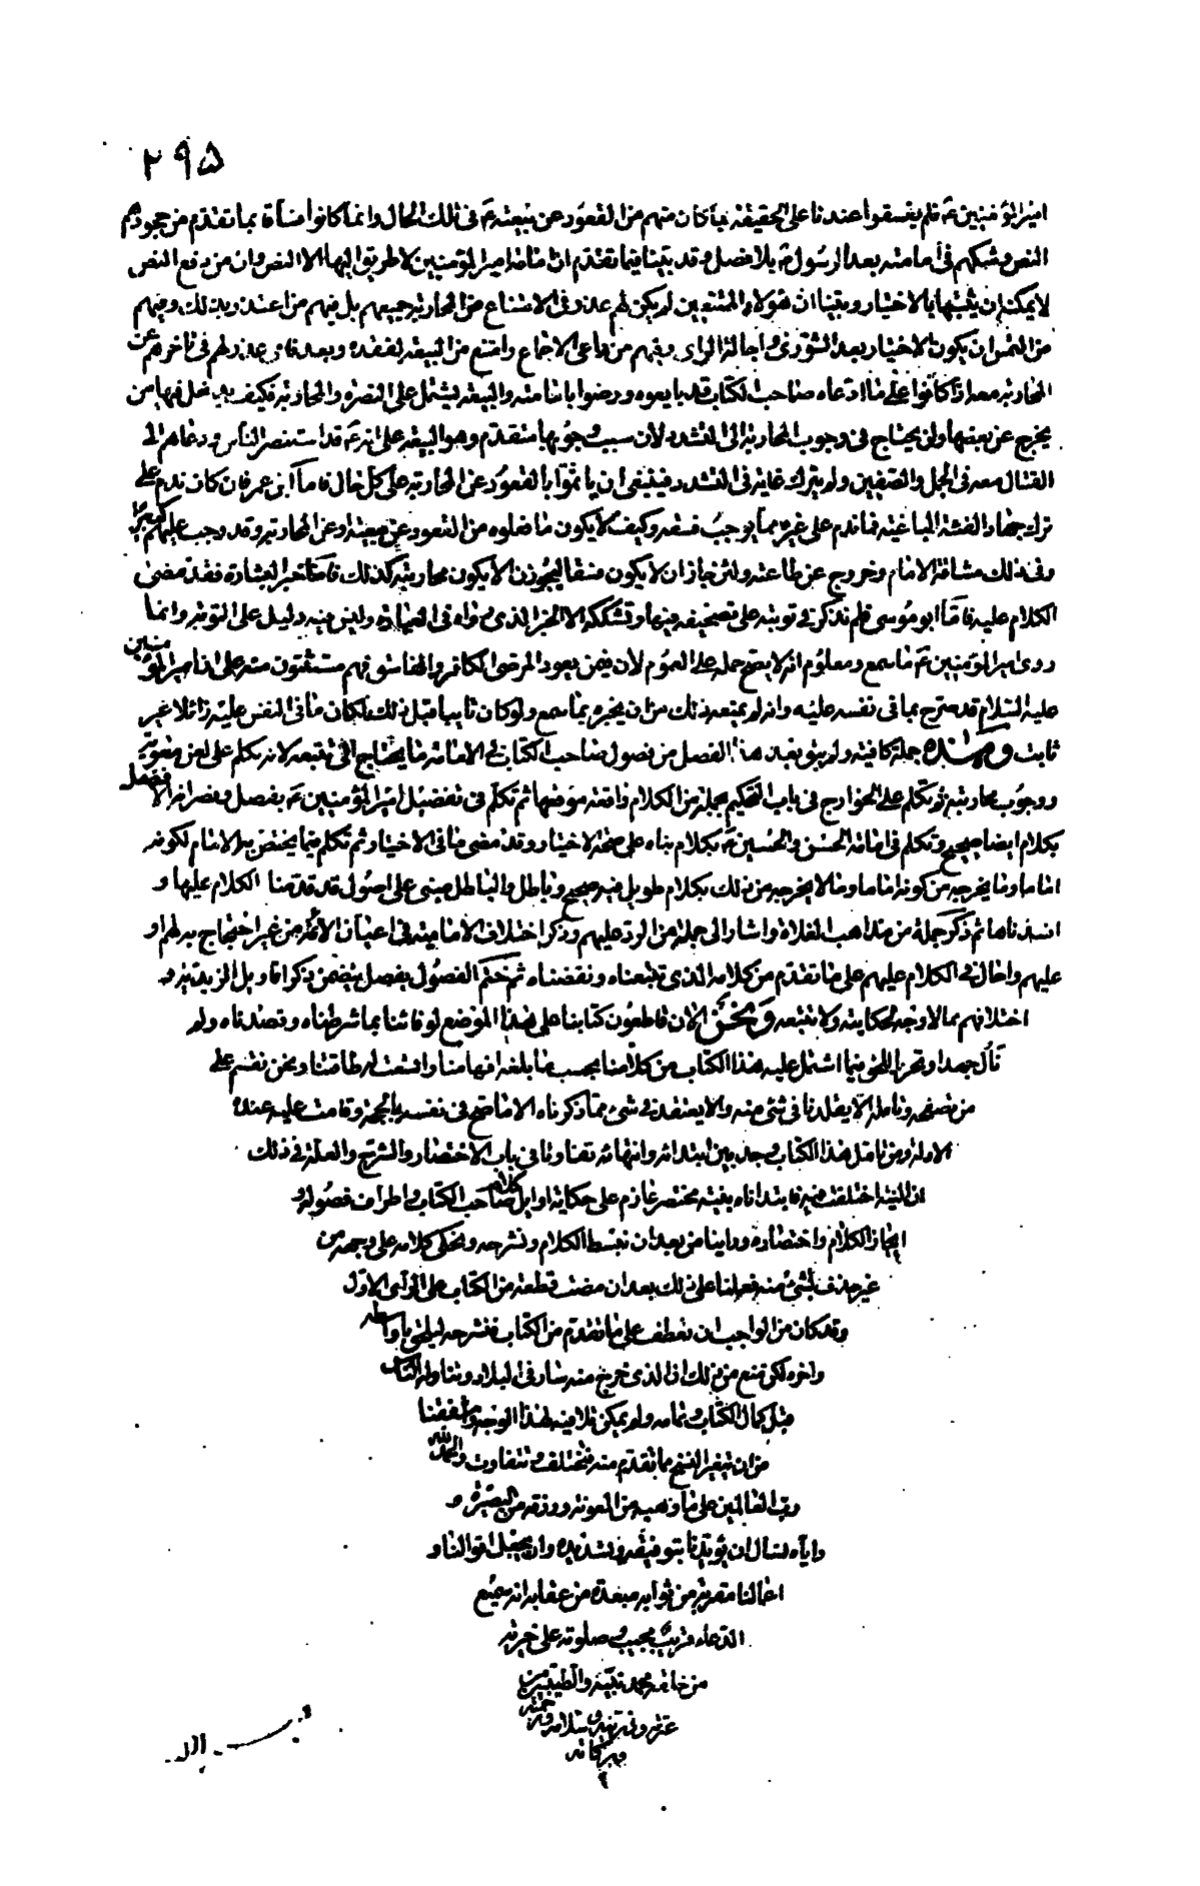 ٢٩۵
امير المؤمنين ع فلم يفسقوا عندنا على الحقيقة بما كان منهم من القعود عن بيعته ع فى تلك الحال وانما كانوا فساقا بما تقدم من جحودهم
النص وشكهم فى امامته بعد الرسول ص بلا فصل وقد بينا فيما تقدم ان امامة امير المؤمنين لا طريق اليها الا النص وان من دفع النص
لا يمكنه ان يثبتها بالاختيار وبينا ان هؤلاء الممتنعين لم يكن لهم عذر فى الامتناع من المحاربة جميعهم بل فيهم من اعتذر بذلك وفيهم
من التمس ان يكون الاختيار بعد الشورى واجالة الراى وفيهم من ادعى الاجماع وامتنع من البيعة لفقده وبعد فاى عذر لهم فى تاخرهم عن
المحاربة معه اذا كانوا على ما ادعاه صاحب الكتاب قد بايعوه ورضوا بامامته والبيعة يشتمل على النصرة والمحاربة فكيف يدخل فيها من
يخرج عن بعضها ولن يحتاج فى وجوب المحاربة الى التشدد لان سبب وجوبها متقدم وهو البيعة على انه ع قد استنصر الناس ودعاهم الى
القتال معه فى الجمل والصفين ولم يترك غاية فى التشدد فينبغى ان ياثموا بالقعود عن المحاربة على كل حال فاما ابن عمر فان كان ندم على
ترك جهاد الفئة الباغية فما ندم على غيره مما يوجب فسقه وكيف لا يكون ما فعلوه من القعود عن بيعته او عن المحاربة وقد وجب عليهم كبيرا
وفى ذلك مشاقة الامام وخروج عن طاعته ولئن جاز ان لا يكون فسقا ليجوزن الا يكون محاربته كذلك فاما خبر البشارة فقد مضى
الكلام عليه فاما ابو موسى فلم نذكر فى توبته على تضعيفه فيها وتشككه الا الخبر الذى رواه فى العيادة وليس فيه دليل على التوبة وانما
روى امير المؤمنين ع ما سمع ومعلوم انه لا يصح حمله على العموم لان فيمن يعود المرضى الكافر والفاسق فهم مستثنون منه على ان امير المؤمنين
عليه السلام قد صرح بما فى نفسه عليه وانه لم يمنعه ذلك من ان يخبره بما سمع ولو كان تايبا قبل ذلك لكان ما فى النفس عليه زائلا غير
ثابت وهذه جملة كافية ولم يبق بعد هذا الفصل من فصول صاحب الكتاب فى الامامة ما يحتاج الى تتبعه لانه تكلم على لعن معوية
ووجوب محاربته ثم تكلم على الخوارج فى باب التحكيم بجملة من الكلام واقعة موضعها ثم تكلم فى تفضيل امير المؤمنين ع بفصل ونصر انه الافضل
بكلام ايضا صحيح وتكلم فى امامة الحسن والحسين ع بكلام بناه على صحة الاختيار وقد مضى ما فى الاختيار ثم تكلم فيما يختص به الامام لكونه
اماما وما يخرجه من كونه اماما وما لا يخرجه من ذلك بكلام طويل فيه صحيح وباطل والباطل مبنى على اصول قد قدمنا الكلام عليها و
افسدناها ثم ذكر جملة من مذاهب الغلاة واشار الى جملة من الرد عليهم وذكر اختلاف الامامية فى اعيان الائمة من غير احتجاج به لهم او
عليهم واحال فى الكلام عليهم على ما تقدم من كلامه الذى تتبعناه ونقضناه ثم ختم الفصول بفصل يتضمن ذكر اقاويل الزيدية و
اختلافهم مما لا وجه لحكايته ولا تتبعه ونحن الان قاطعون كتابنا على هذا الموضع لوفائنا بما شرطناه وقصدناه ولم
نال جهدا وتحريا للحق فيما اشتمل عليه هذا الكتاب من كلامنا بحسب ما بلغه افهامنا واتسعت له طاقتنا ونحن نقسم على
من تصفحه وتامله الا يقلدنا فى شئ منه والا يعتقد فى شئ مما ذكرناه الا ما صح فى نفسه بالحجة وقامت عليه عنده
الادلة ومن تامل هذا الكتاب وجد بين ابتدائه وانتهائه تفاوتا فى باب الاختصار والشرح والعلة فى ذلك
ان النية اختلفت فيه فابتداناه بنية مختصر عازم على حكاية اوايل كلام صاحب الكتاب واطراف فصوله و
ايجاز الكلام واختصاره وراينا من بعد ان نبسط الكلام ونشرحه ونحكى كلامه على وجهه من
غير حذف لشئ منه فعملنا على ذلك بعد ان مضت قطعة من الكتاب على الراى الاول
وقد كان من الواجب ان نعطف على ما تقدم من الكتاب فنشرحه ليلحق باواسطه
واخره لكن منع من ذلك ان الذى خرج منه سار فى البلاد وتناوله الناس
قبل كمال الكتاب وتمامه ولم يمكن تلافيه لهذا الوجه واشفقنا
من ان تغير النسخ مما تقدم منه فتختلف وتتفاوت والحمد لله
رب العالمين على ما وهبه من المعونة ورزقه من البصيرة و
واياه نسال ان يؤيدنا بتوفيقه وتسديده وان يجعل اقوالنا و
اعمالنا مقربة من ثوابه مبعدة من عقابه انه سميع
الدعاء قريب مجيب وصلوته على خيرته
من خلقه محمد نبيه والطيبين من
عترته وذريته وسلامه ورحمته
وبركاته